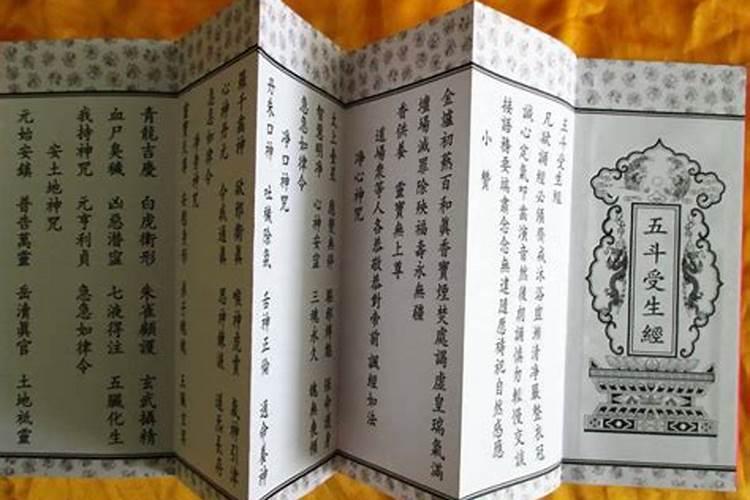 五斗受生經
五斗受生經
凡欲誦經必須齋戒沐浴盥漱清淨嚴整衣冠
誠心定氣叩齒演音然後朗誦慎勿輕慢交談
接語務要端肅念念無違隨應禱祀自然感應
小讚
金爐初爇百和眞香寶煙焚處謁虛皇瑞氣滿
壇場滅罪除殃福壽永無疆
香供養 靈寶無上尊
道場衆等人各恭敬恭對帝前誦經如法
淨心神咒
太上台星 應變無停 驅邪縛魅 保命護身
智慧明淨 心神安寍 三魂永久 魄無喪傾
急急如律令
淨口神咒
丹朱口神 吐穢除氛 舌神正倫 通命養神
羅千齒神 欲邪衛眞 喉神虎賁 氣神引津
心神丹元 令我通眞 思神鍊液 道炁長存
急急如律令
淨身神咒
靈寶天尊 安慰身形 弟子魂魄 五臟玄冥
青龍吉慶 白虎衛形 朱雀顧護 玄武攝精
血尸臭穢 凶惡潛寍 七液得注 五臟化生
我持神咒 元亨利貞 急急如律令
安土地神咒
元始安鎮 普告萬靈 岳清眞官 土地祗靈